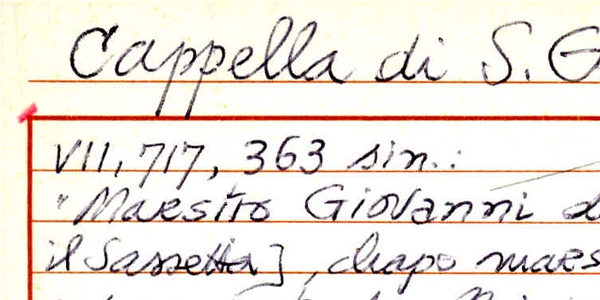 Cappella di S. G
VII, 717, 363 sin.:
"Maestro Giovanni d
il Sassetta], chapo maes